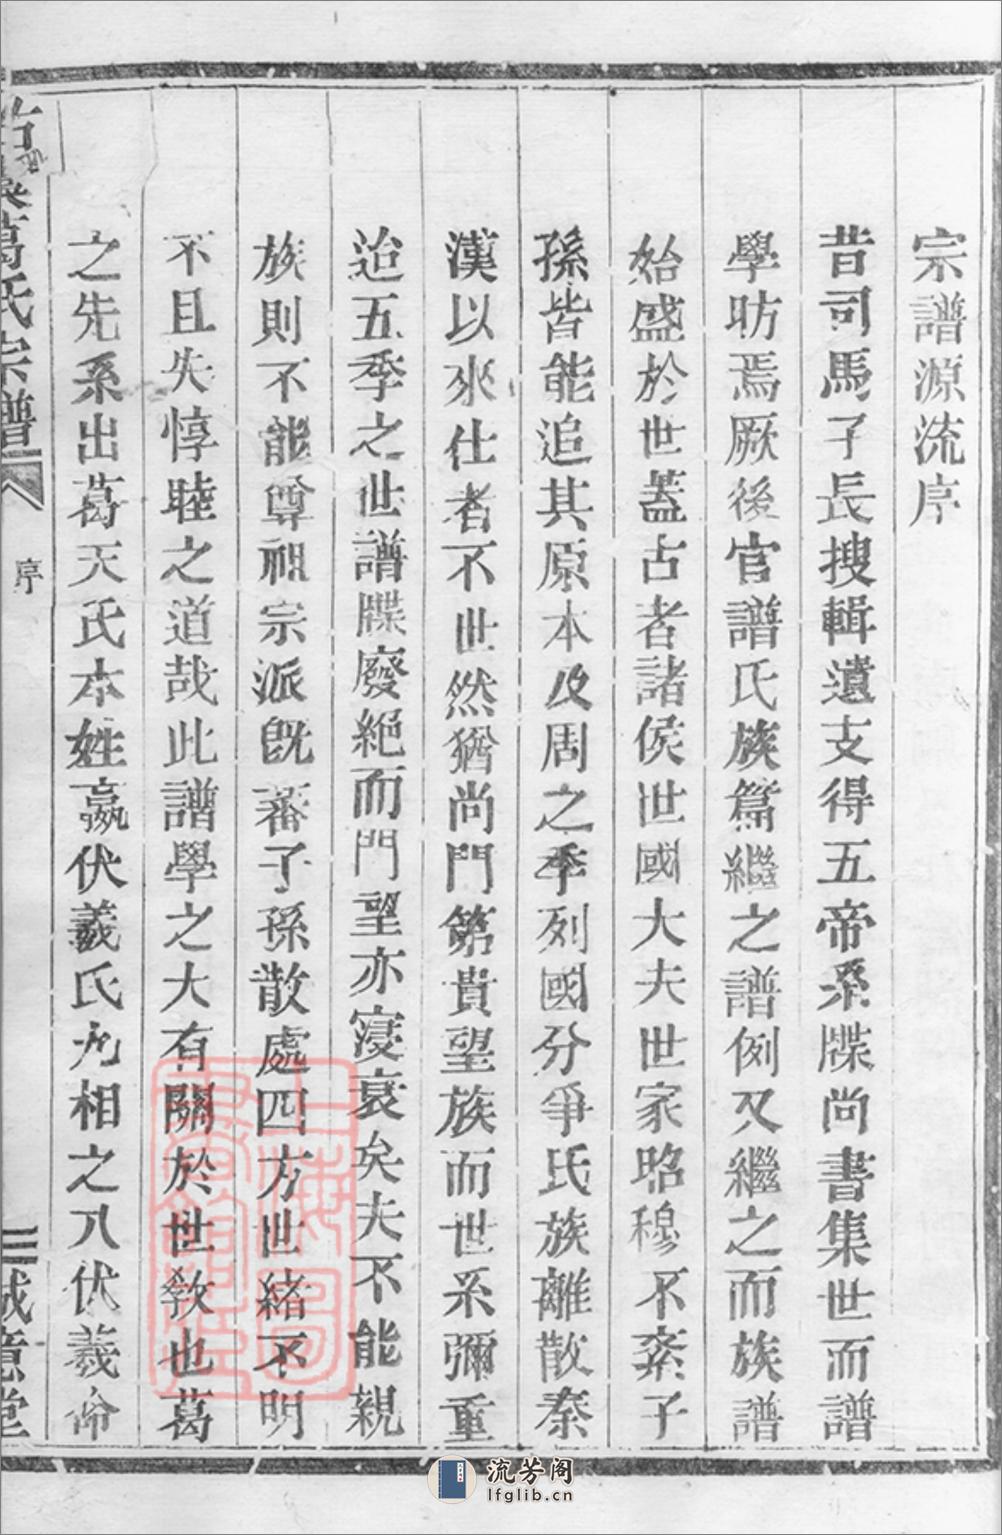 宗譜源流序
昔司馬子長搜輯遺支得五帝系牒尚書集世而譜
學昉焉厥後官譜氏族篇繼之譜例又繼之而族譜
始盛於世蓋古者諸侯世國大夫世家昭穆不紊子
孫皆能追其原本及周之季列國分爭氏族離散秦
漢以來仕者不世然猶尚門第貴望族而世系彌重
迨五季之世譜牒廢絕而門望亦寖衰矣夫不能親
族則不能尊祖宗派旣蕃子孫散處四方世緒不明
不且失惇睦之道哉此譜學之大有關於世教也葛
之先系出葛天氏本姓嬴伏羲氏九相之八伏羲命
葛氏宗譜
序
三
誠意堂
上海圖書館藏
流芳阁
lfglib.cn